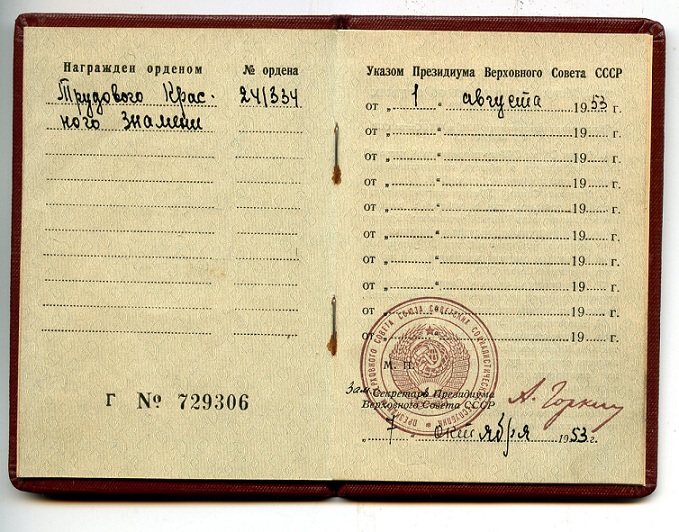 Награжден орденом № ордена
Трудового Крас- 241334
ного Знамени
Г № 729306
Указом Президиума Верховного Совета СССР
от „ 1 “ августа 1953 г.
от „ “ 19 г.
от „ “ 19 г.
от „ “ 19 г.
от „ “ 19 г.
от „ “ 19 г.
от „ “ 19 г.
от „ “ 19 г.
от „ “ 19 г.
от „ “ 19 г.
М. П.
Зам. Секретаря Президиума
Верховного Совета СССР А. Горкин
„ 7 “ октября 1953 г.